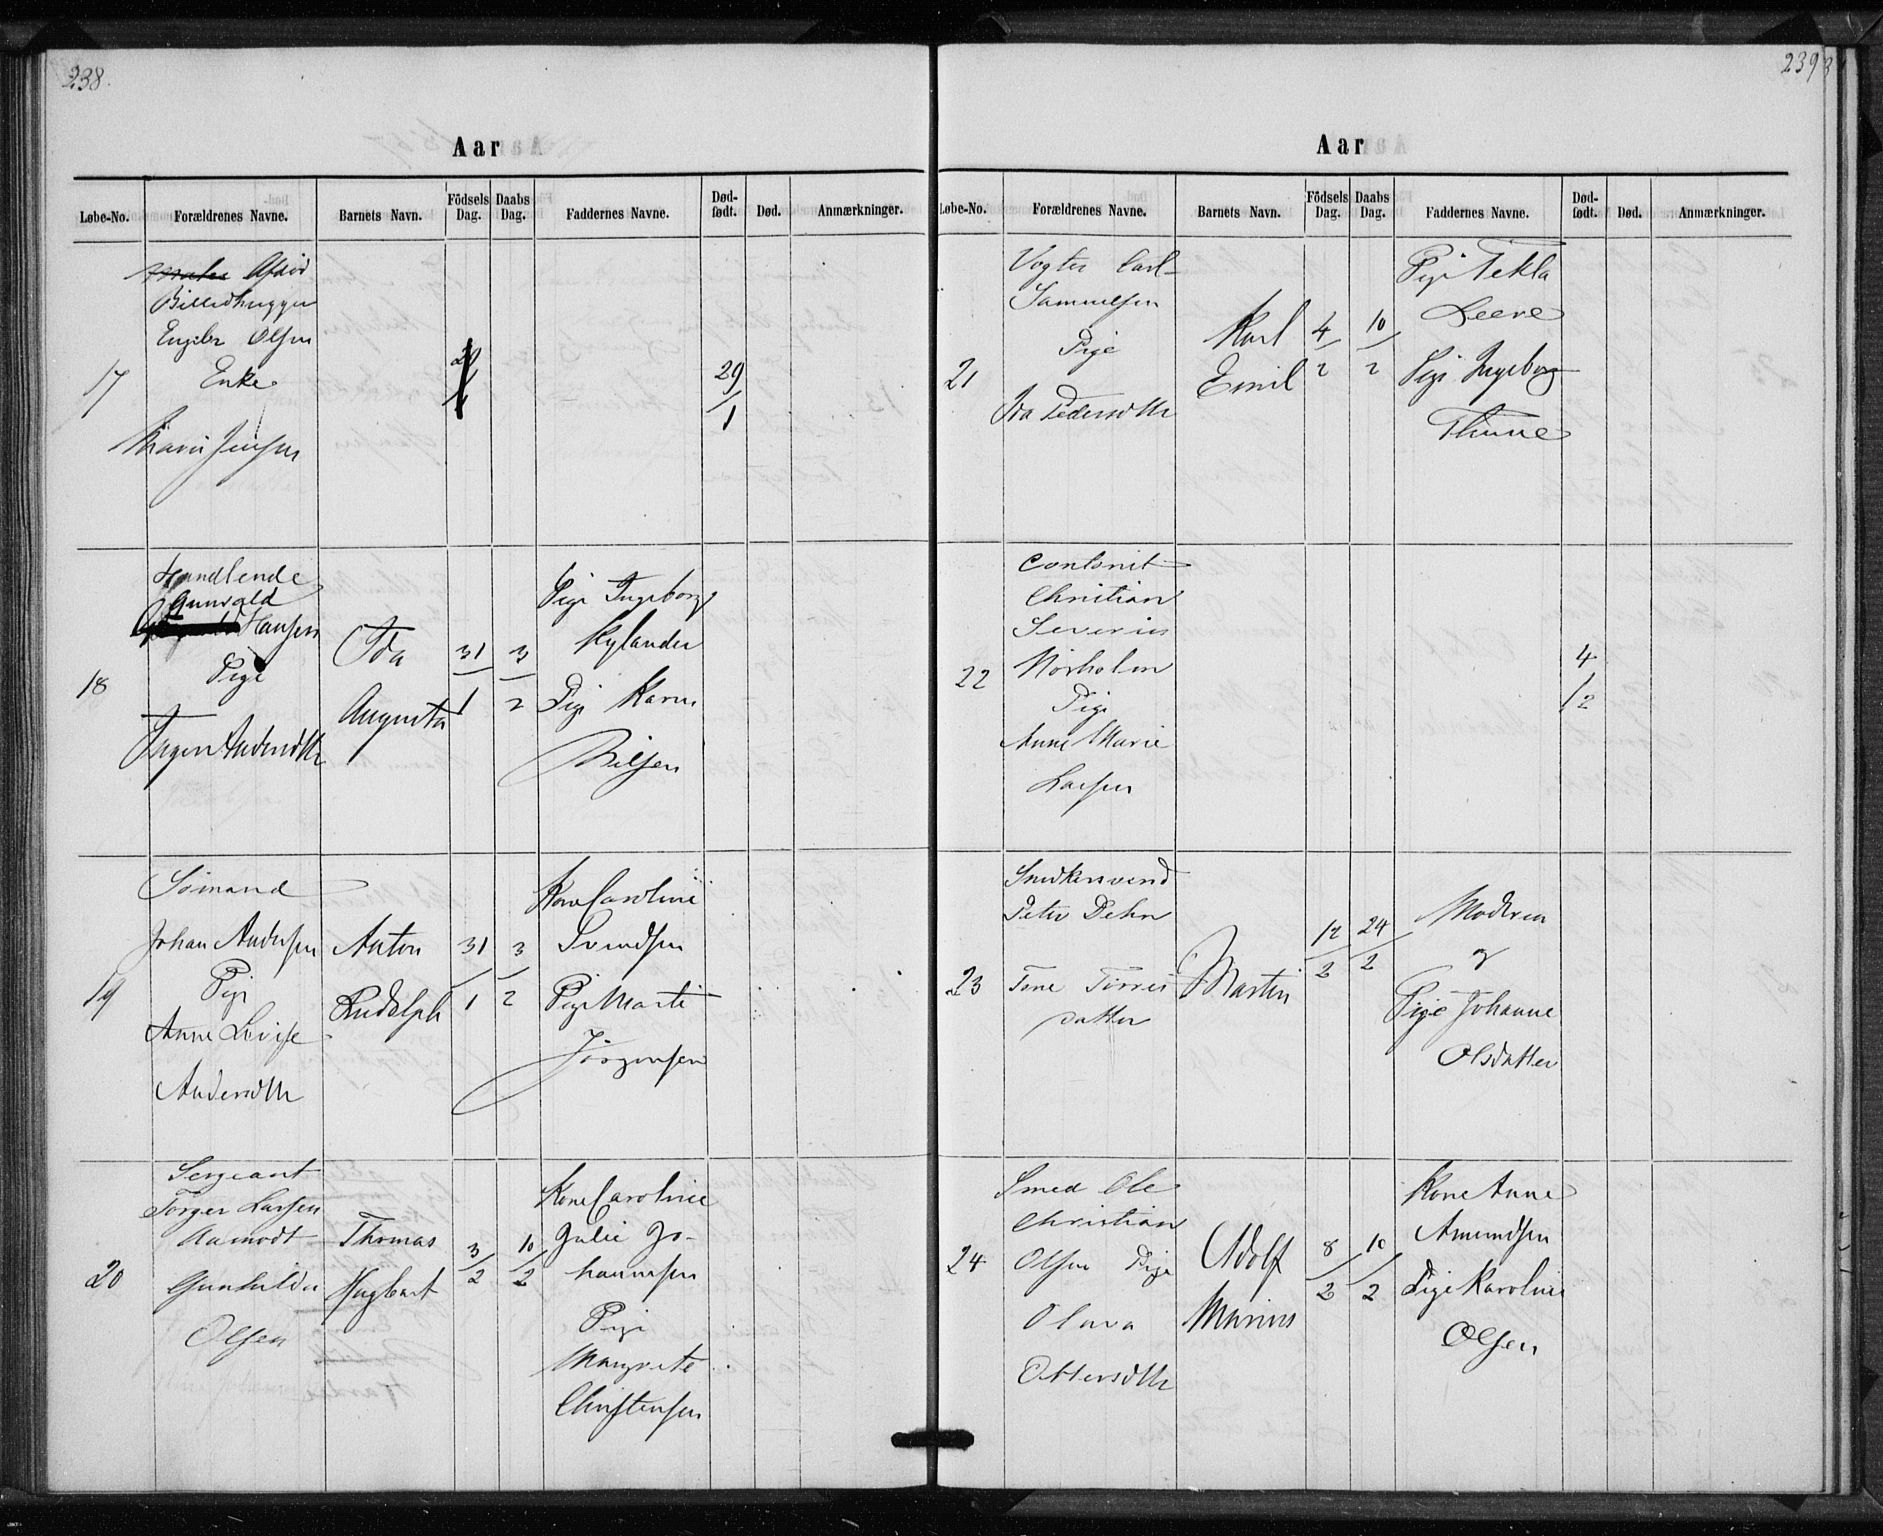 238.
Aar
Løbe-No. Forældrenes Navne. Barnets Navn. Födsels Dag. Daabs Dag. Faddernes Navne. Død-født. Død. Anmærkninger.
17
Afdöd
Billedhugger
Engebr Olsen
Enke
Maria Jensen
29/1
29/1
18
Handlende
Gunvald
Hansen
Pige
Inger Andersdtr
Ida
Augusta
31/1
3/2
Pige Ingeborg
Nylander
Pige Karen
Nilsen
19
Sömand
Johan Andersen
Pige
Anne Lovise
Andersdtr
Anton
Rudolph
31/1
3/2
Kone Caroline
Svendsen
Pige Marte
Jörgensen
20
Sergeant
Torger Larsen
Aamodt
Gunhilda
Olsen
Thomas
Hagbart
3/2
10/2
Kone Caroline
Julie Jo-
hannesen
Pige
Margrete
Christensen
239
Aar
Løbe-No. Forældrenes Navne. Barnets Navn. Födsels Dag. Daabs Dag. Faddernes Navne. Død-født. Død. Anmærkninger.
21
Vogter Carl
Samuelsen
Pige
Ida Pedersdtr
Karl
Emil
4/2
10/2
Pige Tekla
Leere
Pige Ingeborg
Thune
22
Contorist
Christian
Severin
Norholm
Pige
Anne Marie
Larsen
4/2
23
Snedkersvend
Peter Dehn
Tone Torres
datter
Martin
12/2
24/2
Moderen
og
Pige Johanne
Olsdatter
24
Smed Ole
Christian
Olsen Pige
Olava
Ottersdtr
Adolf
Marius
8/2
10/2
Kone Anne
Amundsen
Pige Karoline
Olsen